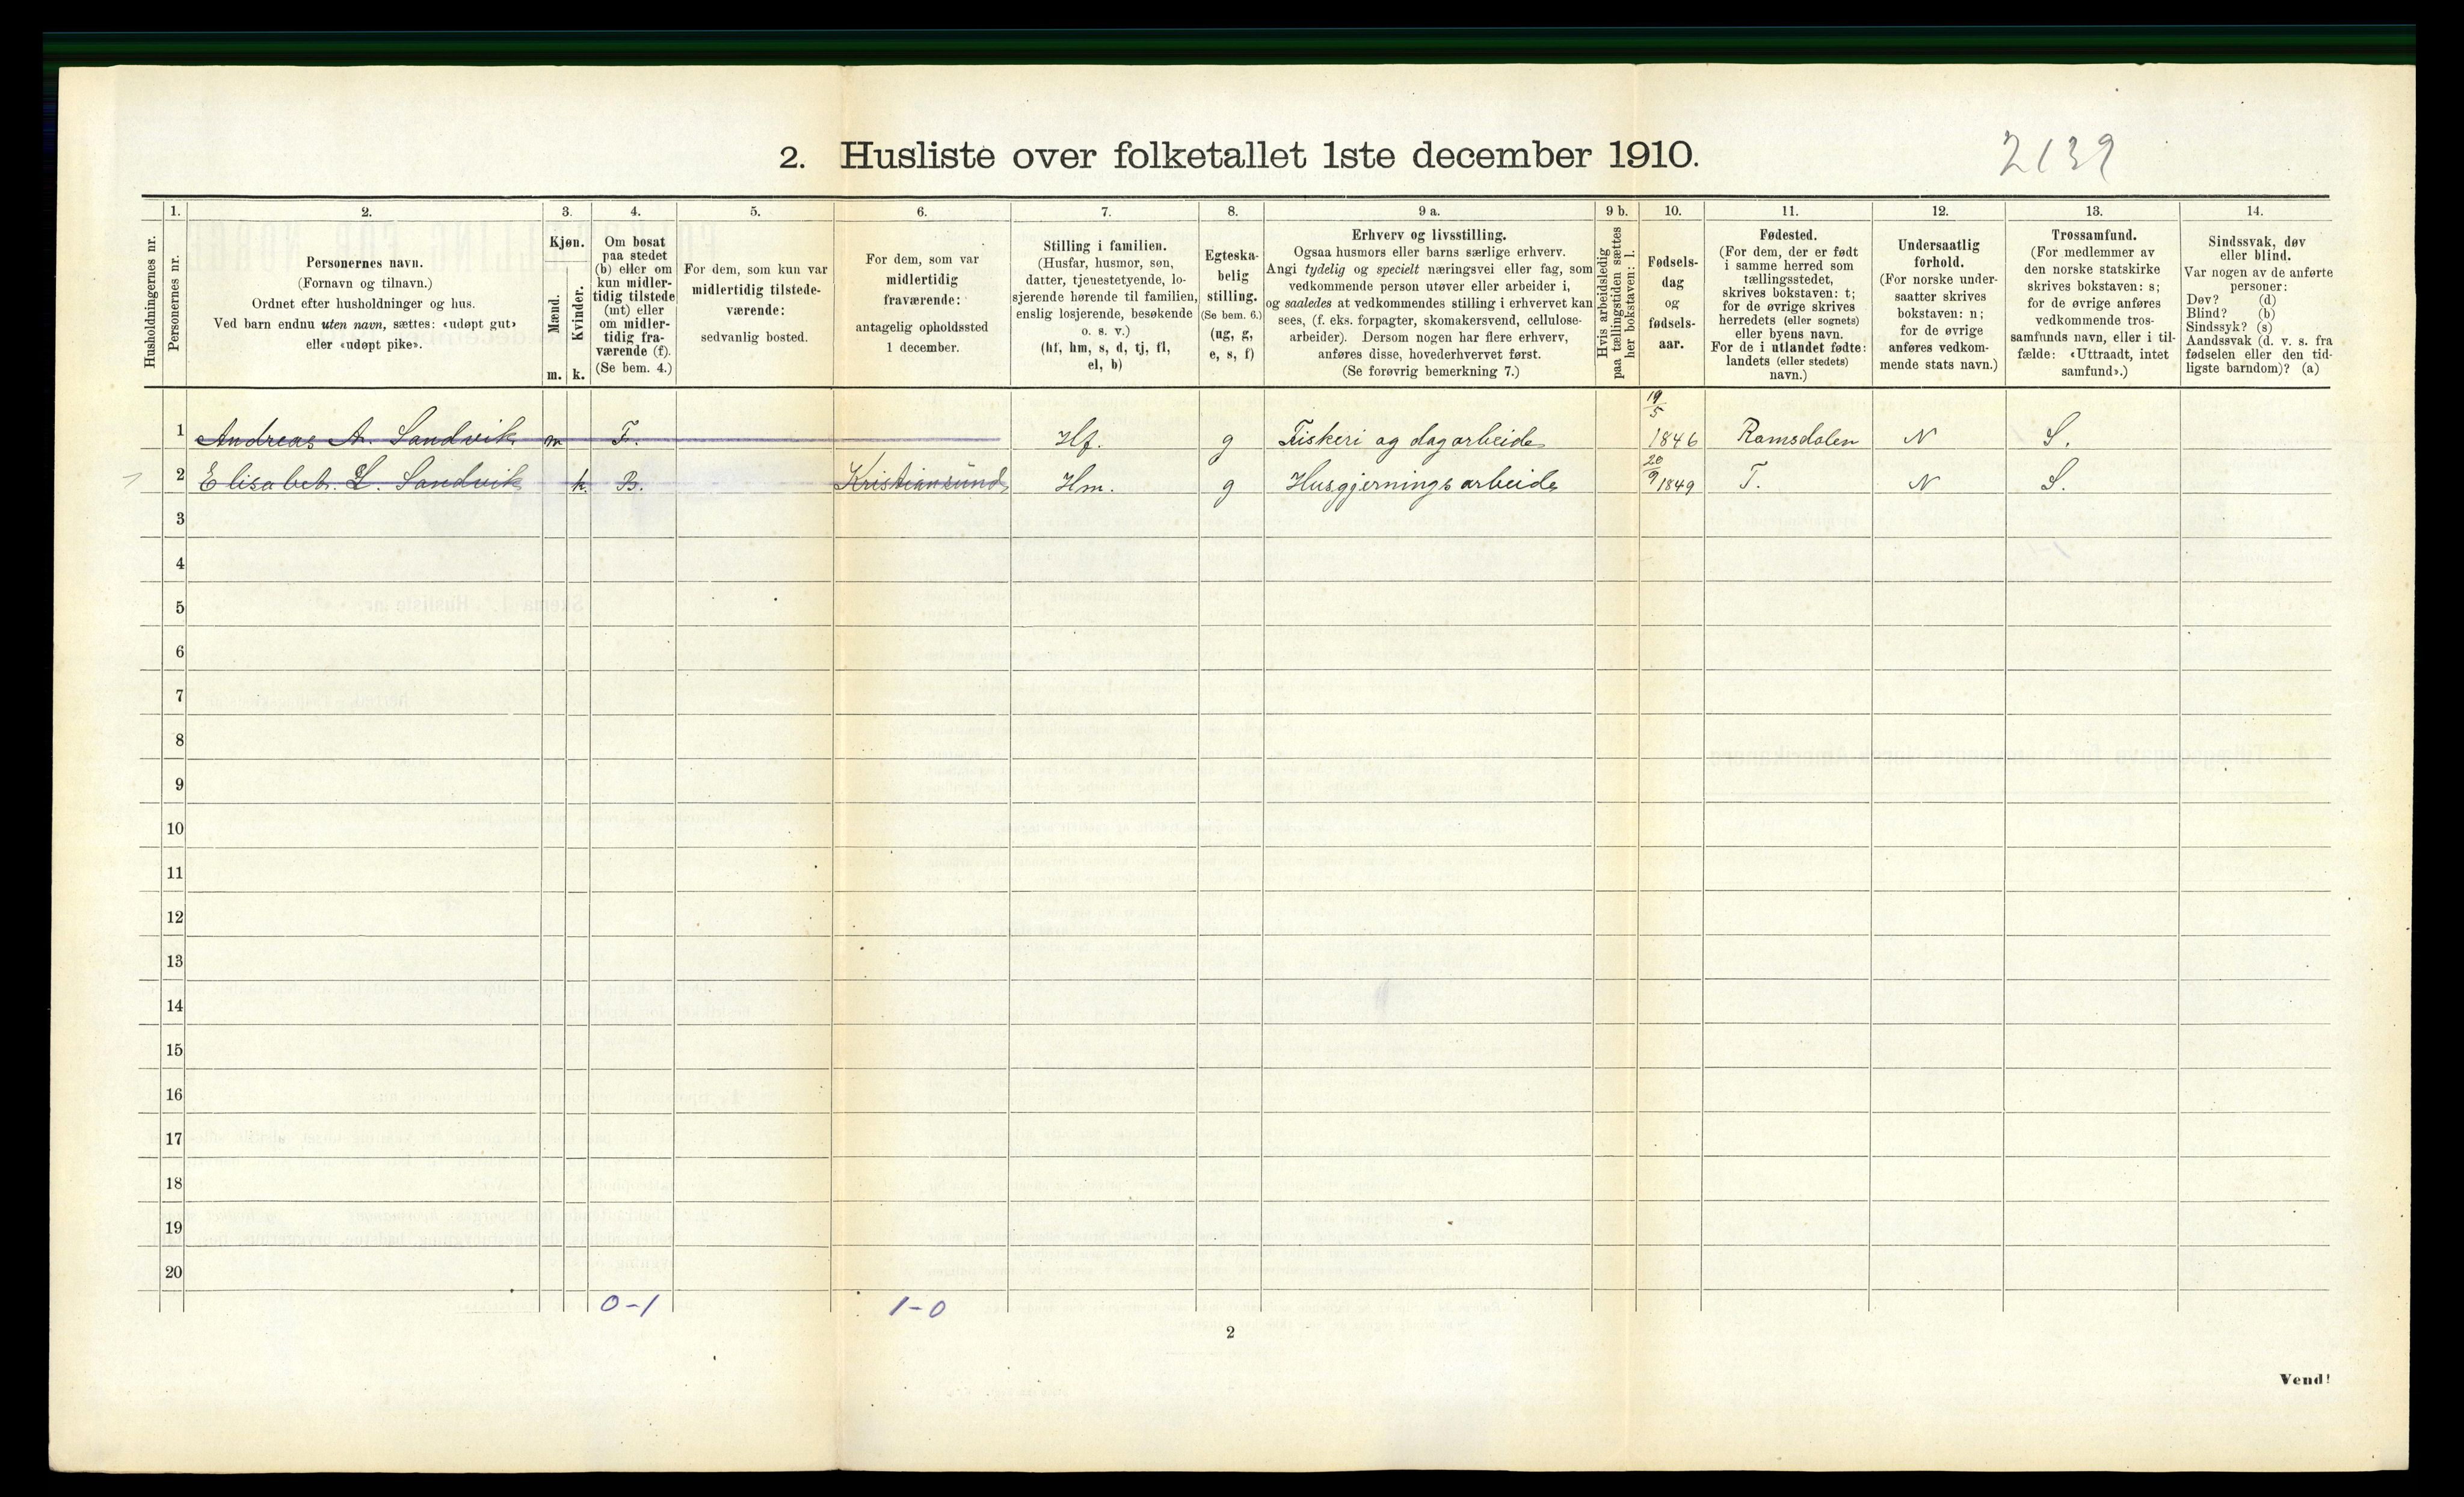 2. Husliste over folketallet 1ste december 1910.
2139
1. 2. 3. 4. 5. 6. 7. 8. 9 a. 9 b. 10. 11. 12. 13. 14.
Husholdningernes nr.
Personernes nr.
Personernes navn.
(Fornavn og tilnavn.)
Ordnet efter husholdninger og hus.
Ved barn endnu uten navn, sættes: «udøpt gut»
eller «udøpt pike».
Kjøn.
Mænd.
Kvinder.
m. k.
Om bosat
paa stedet
(b) eller om
kun midler-
tidig tilstede
(mt) eller
om midler-
tidig fra-
værende (f).
(Se bem. 4.)
For dem, som kun var
midlertidig tilstede-
værende:
sedvanlig bosted.
For dem, som var
midlertidig
fraværende:
antagelig opholdssted
1 december.
Stilling i familien.
(Husfar, husmor, søn,
datter, tjenestetyende, lo-
sjerende hørende til familien,
enslig losjerende, besøkende
o. s. v.)
(hf, hm, s, d, tj, fl,
el, b)
Egteska-
belig
stilling.
(Se bem. 6.)
(ug, g,
e, s, f)
Erhverv og livsstilling.
Ogsaa husmors eller barns særlige erhverv.
Angi tydelig og specielt næringsvei eller fag, som
vedkommende person utøver eller arbeider i,
og saaledes at vedkommendes stilling i erhvervet kan
sees, (f. eks. forpagter, skomakersvend, cellulose-
arbeider). Dersom nogen har flere erhverv,
anføres disse, hovederhvervet først.
(Se forøvrig bemerkning 7.)
Hvis arbeidsledig
paa tællingstiden sættes
her bokstaven: l.
Fødsels-
dag
og
fødsels-
aar.
Fødested.
(For dem, der er født
i samme herred som
tællingsstedet,
skrives bokstaven: t;
for de øvrige skrives
herredets (eller sognets)
eller byens navn.
For de i utlandet fødte:
landets (eller stedets)
navn.)
Undersaatlig
forhold.
(For norske under-
saatter skrives
bokstaven: n;
for de øvrige
anføres vedkom-
mende stats navn.)
Trossamfund.
(For medlemmer av
den norske statskirke
skrives bokstaven: s;
for de øvrige anføres
vedkommende tros-
samfunds navn, eller i til-
fælde: «Uttraadt, intet
samfund».)
Sindssvak, døv
eller blind.
Var nogen av de anførte
personer:
Døv? (d)
Blind? (b)
Sindssyk? (s)
Aandssvak (d. v. s. fra
fødselen eller den tid-
ligste barndom)? (a)
1 Andreas A. Sandvik m F. Hf. g Fiskeri og dagarbeide 19/5 1846 Romsdalen N S.
2 Elisabet. L. Sandvik k. B. Kristiansund Hm. g Husgjerningsarbeide 20/9 1849 T. N S.
3
4
5
6
7
8
9
10
11
12
13
14
15
16
17
18
19
20
0-1 1-0
2
Vend!